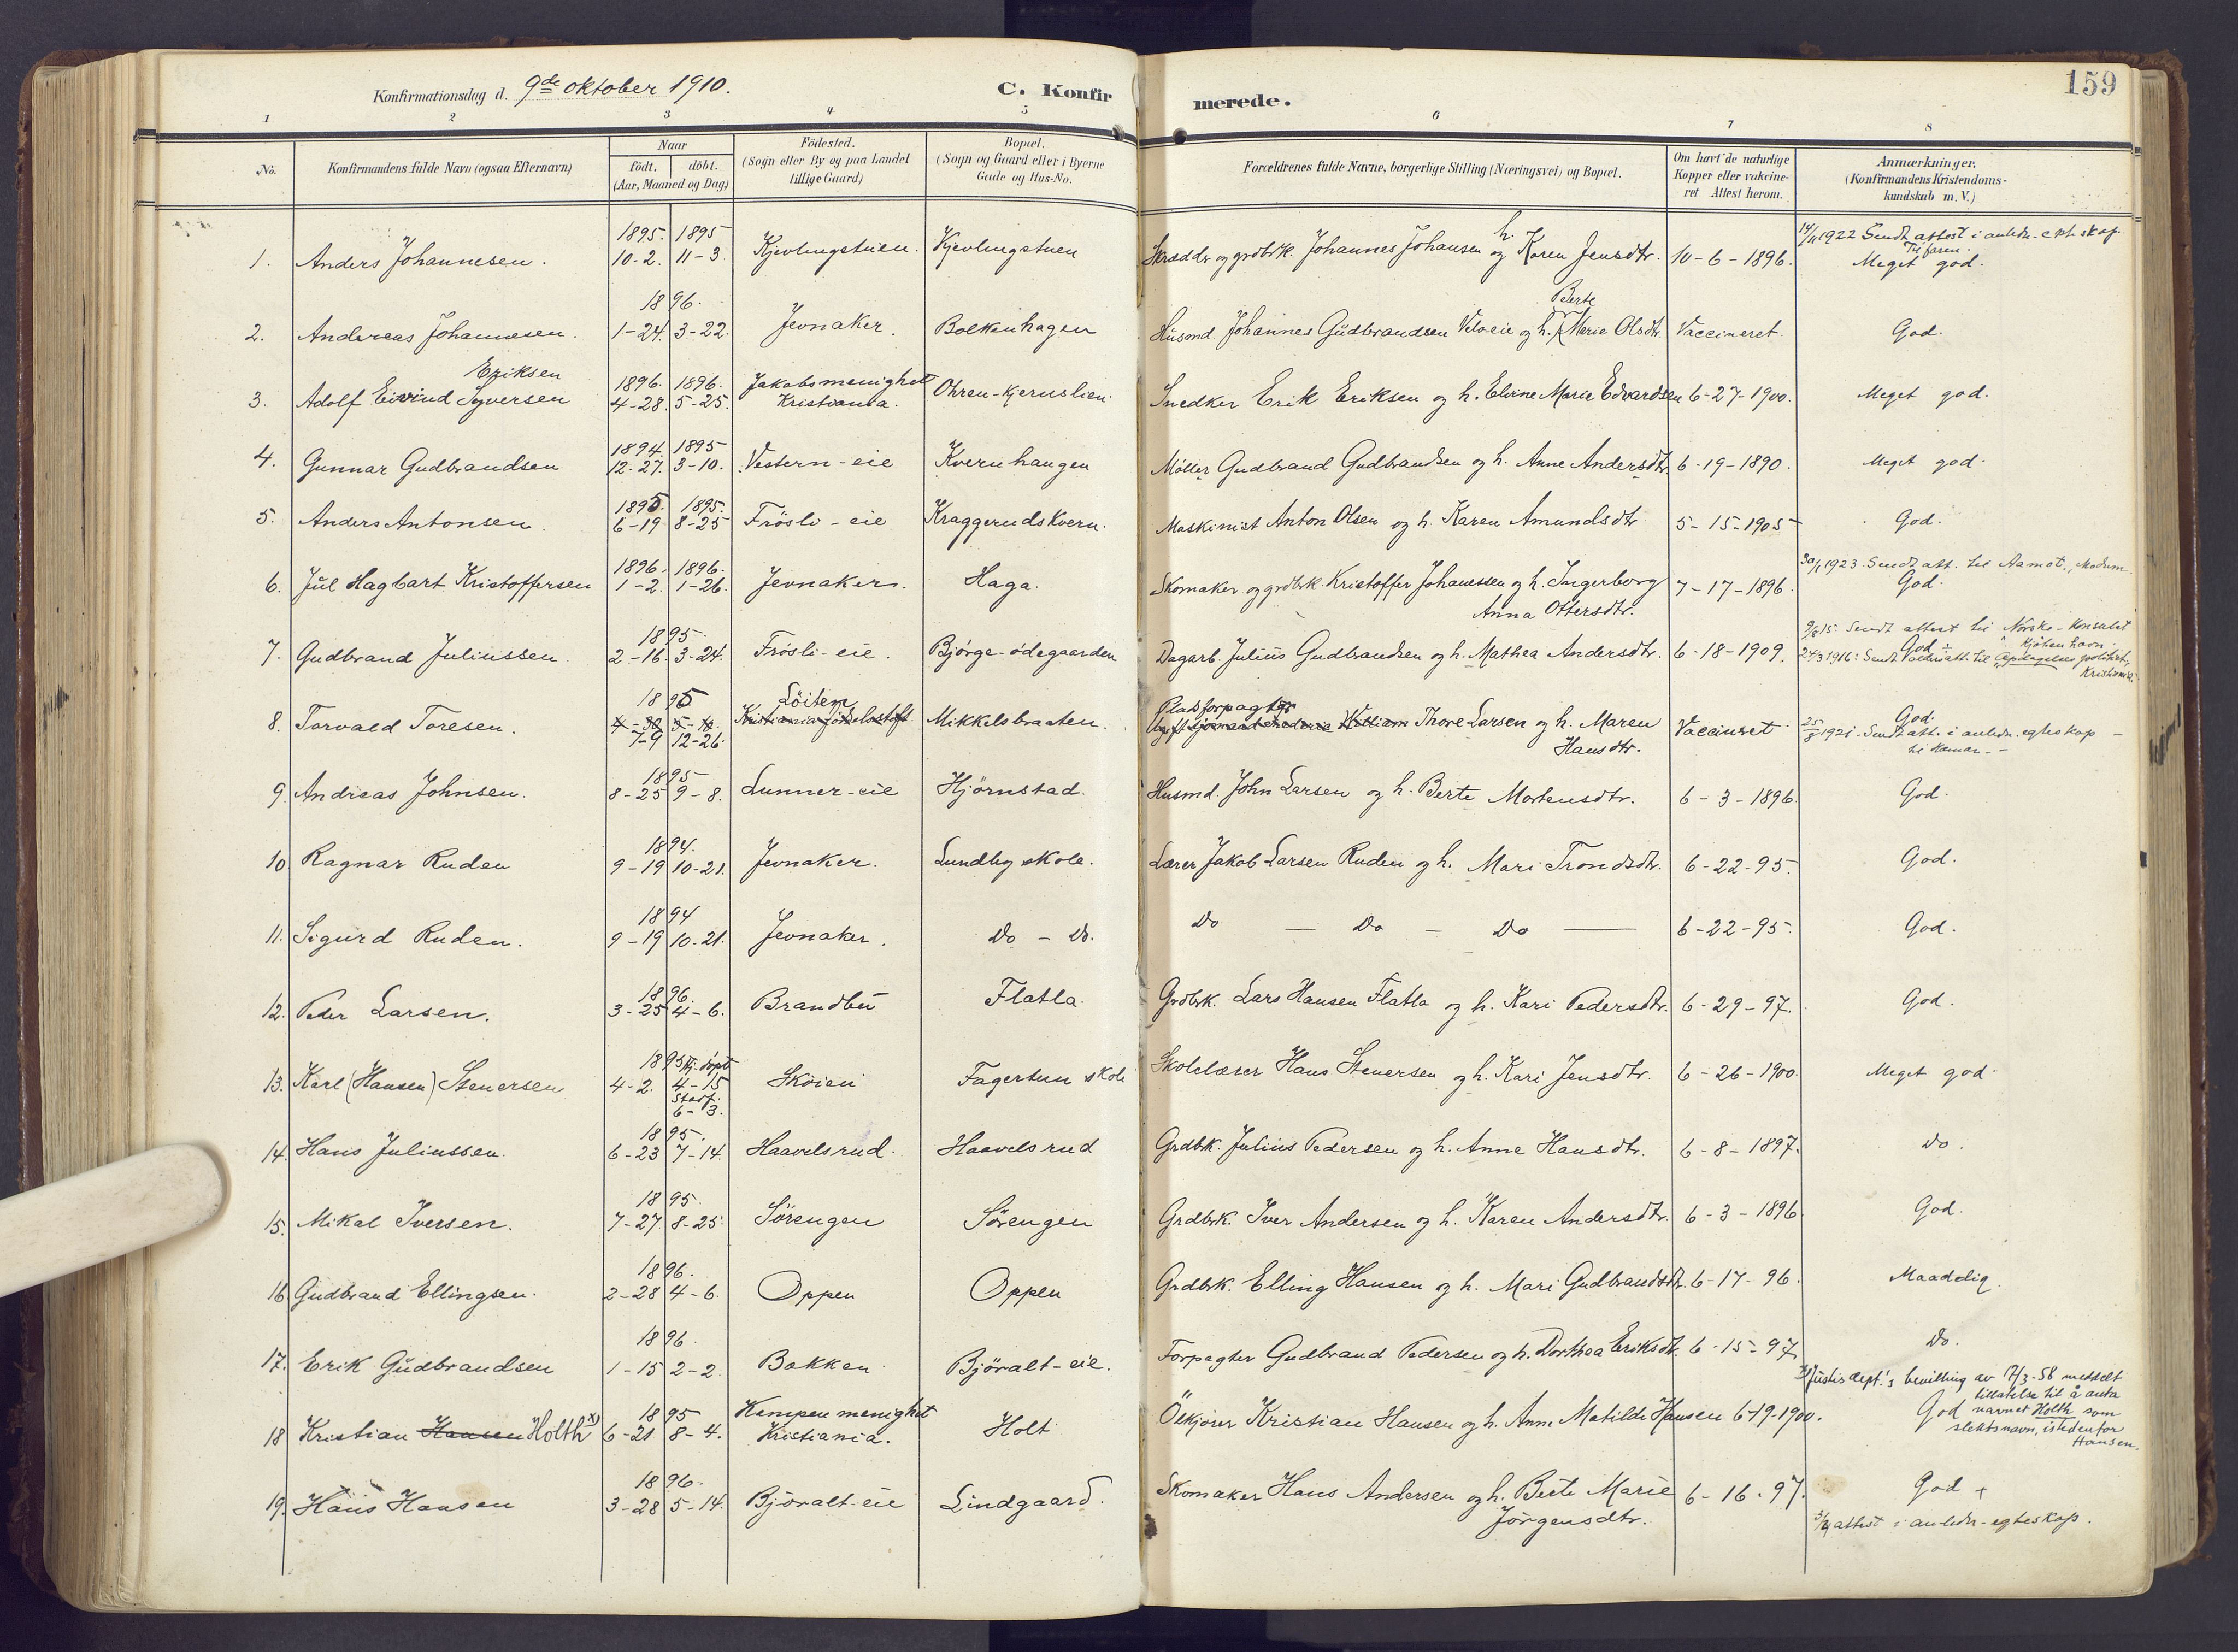 Konfirmationsdag d. 9de oktober 1910. C. Konfirmerede. 159
1 2 3 4 5 6 7 8
No. Konfirmandens fulde Navn (ogsaa Efternavn) Naar født. døbt. (Aar, Maaned og Dag) Födested. (Sogn eller By og paa Landet tillige Gaard) Bopæl. (Sogn og Gaard eller i Byerne Gade og Hus-No. Forældrenes fulde Navne, borgerlige Stilling (Næringsvei) og Bopæl. Om havt de naturlige Kopper eller vakcineret Attest herom. Anmærkninger. (Konfirmandens Kristendomskundskab m. V.)
1. Anders Johannesen. 1895. 10-2. 1895 11-3. Kjevlingstuen. Kjevlingstuen Skrædder og grdbrk. Johannes Johansen og h. Karen Jensdtr. 10-6-1896. 1922 Sendt attest i anledn. ekt.skap. Til faren. Meget god.
2. Andreas Johannesen. 1896. 1-24. 3-22. Jevnaker. Bolkenhagen Husmd Johannes Gudbrandsen Veloeie og h. Berte Marie Olsdtr. Vaccineret. God.
3. Adolf Eivind Syversen Eriksen 1896. 4-28. 1896. 5-25. Jakobs menighet Kristiania. Ohren-Kjernslien. Snedker Erik Eriksen og h. Elvine Marie Edvardsen 6-27-1900. Meget god.
4. Gunnar Gudbrandsen 1894. 12-27. 1895 3-10. Vestern-eie Kvernhaugen Möller Gudbrand Gudbrandsen og h. Anne Andersdtr. 6-19-1890. Meget god.
5. Anders Antonsen. 1895. 6-19 1895. 8-25 Frösli-eie Kraggerudskvern. Maskinist Anton Olsen og h. Karen Amundsdtr 5-15-1905 God.
6. Jul Hagbart Kristoffersen 1896. 1-2. 1896. 1-26. Jevnaker. Haga. Skomaker og grdbrk. Kristoffer Johanessen og h. Ingerborg Anna Ottersdtr. 7-17-1896. 30/1 1923 Sendt att. til Aamot, Modum. God.
7. Gudbrand Juliussen. 1895. 2-16. 3-24. Frösli-eie. Bjørge-ödegaarden Dagarb. Julius Gudbrandsen og h. Mathea Andersdtr. 6-18-1909. 9/8 15. Sendt attest til Norske-Konsulat Kjöbenhavn. God 24/3 1916: Sendt att. til Opdagelsespolitiet, Kristiania.
8. Torvald Toresen. 1895 7-9 12-26. Löiten Mikkelsbraaten. Pladsforpagter Thore Larsen og h. Maren Hansdtr. Vaccineret God. 25/8 1921. Sendt att. i anledn. egteskap til Hamar.
9. Andreas Johnsen. 1895 8-25 9-8. Lunner-eie Hjörnstad. Husmd. John Larsen og h. Berte Mortensdtr. 6-3-1896. God.
10. Ragnar Ruden 1894. 9-19 10-21. Jevnaker. Lundby skole. Lærer Jakob Larsen Ruden og h. Mari Trondsdtr. 6-22-95. God.
11. Sigurd Ruden. 1894 9-19 10-21. Jevnaker. Do - Do. Do - Do - Do 6-22-95. God.
12. Peder Larsen. 1896. 3-25 4-6. Brandbu Flatla. Grdbrk. Lars Hansen Flatla og h. Kari Pedersdtr. 6-29-97. God.
13. Karl (Hansen) Stenersen 1895 4-2. Hj. döpt 4-15 Stadf. 6-3. Sköien Fagertun skole Skolelærer Hans Stenersen og h. Kari Jensdtr. 6-26-1900. Meget god.
14. Hans Juliussen. 1895. 6-23 7-14. Haavelsrud. Haavelsrud Grdbk. Julius Pedersen og h. Anne Hansdtr. 6-8-1897. Do.
15. Mikal Iversen. 1895. 7-27. 8-25. Sörengen Sörengen Grdbrk. Iver Andersen og h. Karen Andersdtr. 6-3-1896. God.
16. Gudbrand Ellingsen. 1896. 2-28 4-6. Oppen Oppen Grdbrk. Elling Hansen og h. Mari Gudbrandsdtr. 6-17-96. Maadelig.
17. Erik Gudbrandsen 1896. 1-15 2-2. Bakken Björalt-eie. Forpagter Gudbrand Pedersen og h. Dorthea Eriksdtr. 6-15-97. Do.
18 Kristian Hansen Holth x) 1895 6-21 8-4. Kampen menighet Kristiania. Holt Ölkjörer Kristian Hansen og h. Anne Matilde Hansen 6-19-1900. x) Justisdept.'s bevilling av 17/3-58 meddelt tillatelse til å anta navnet Holth som slektsnavn, istedenfor Hansen. God
19. Hans Hansen 1896. 3-28 5-14. Björalt-eie Lindgaard. Skomaker Hans Andersen og h. Berte Marie Jörgensdtr. 6-16-97. God + attest i anledn. egteskap.